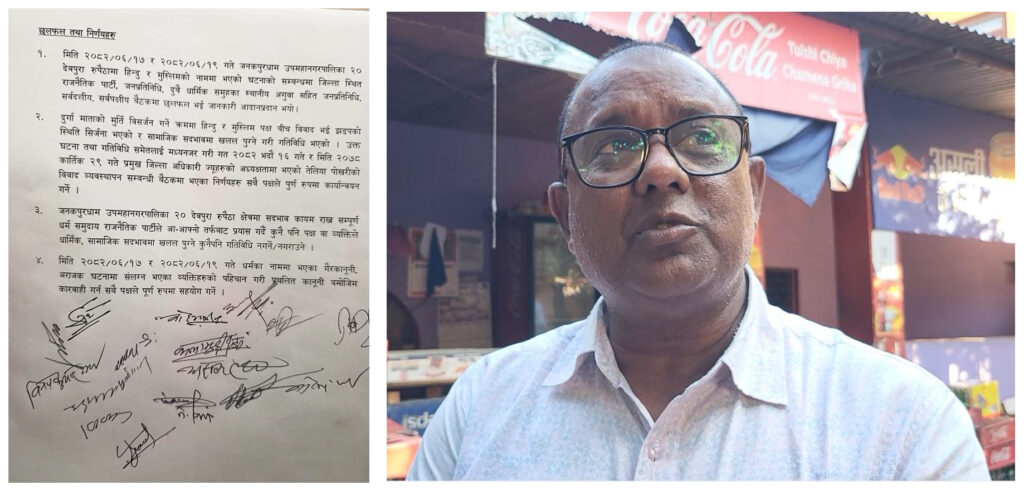 छलफल तथा निर्णयहरु
१. मिति २०८२/०६/१७ र २०८२/०६/१९ गते जनकपुरधाम उपमहानगरपालिका २०
देवपुरा रुपैठामा हिन्दु र मुस्लिमको नाममा भएको घटनाको सम्बन्धमा जिल्ला स्थित
राजनैतिक पार्टी, जनप्रतिनिधि, दुवै धार्मिक समुहका स्थानीय अगुवा सहित जनप्रतिनिधि,
सर्वदलीय, सर्वपक्षीय बैठकमा छलफल भई जानकारी आदानप्रदान भयो।
२. दुर्गा माताको मुर्ति विसर्जन गर्ने क्रममा हिन्दु र मुस्लिम पक्ष वीच विवाद भई झडपको
स्थिति सिर्जना भएको र सामाजिक सदभावमा खलल पुग्ने गरी गतिविधि भएको । उक्त
घटना तथा गतिविधि समेतलाई मध्यनजर गरी गत २०८२ भदौ १६ गते र मिति २०७८
कार्तिक २९ गते प्रमुख जिल्ला अधिकारी ज्यूहरुको अध्यक्षतामा भएको तेलिया पोखरीको
विवाद व्यवस्थापन सम्बन्धी बैठकमा भएका निर्णयहरु सवै पक्षले पुर्ण रुपमा कार्यान्वयन
गर्ने ।
३. जनकपुरधाम उपमहानगरपालिका २० देवपुरा रुपैठा क्षेत्रमा सदभाव कायम राख्न सम्पूर्ण
धर्म समुदाय राजनैतिक पार्टीले आ-आफ्नो तर्फबाट प्रयास गर्दै कुनै पनि पक्ष वा व्यक्तिले
धार्मिक, सामाजिक सदभावमा खलल पुग्ने कुनैपनि गतिविधि नगर्ने/नगराउने ।
४. मिति २०८२/०६/१७ र २०८२/०६/१९ गते धर्मका नाममा भएका गैरकानूनी,
अराजक घटनामा संलग्न भएका व्यक्तिहरुको पहिचान गरी प्रचलित कानूनी वमोजिम
कारवाही गर्न सवै पक्षले पूर्ण रुपमा सहयोग गर्ने ।
Coca-Cola
Tulshi Chiya
Chamena Griha
असली
Red Bull